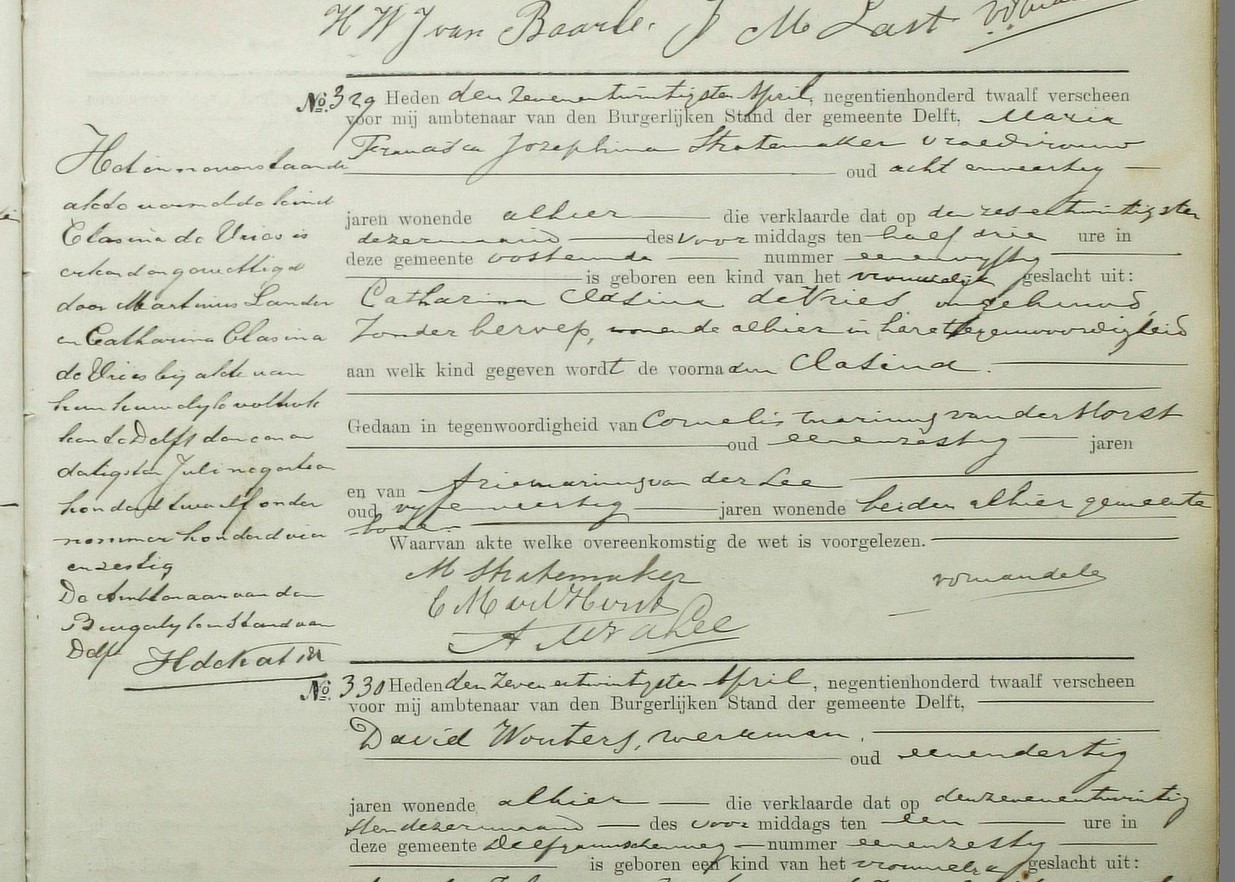 H W J van Baarle. J M Last
No. 329 Heden den zevenentwintigsten April, negentienhonderd twaalf verscheen
voor mij ambtenaar van den Burgerlijken Stand der gemeente Delft, Maria
Francisca Josephina Stratemaker vroedvrouw
oud acht enveertig
jaren wonende alhier die verklaarde dat op den zesentwintigsten
dezer maand des voor middags ten half drie ure in
deze gemeente oosteinde nummer eenenvyftig
is geboren een kind van het vrouwelijk geslacht uit:
Catharina Clasina de Vries ongehuwd,
zonder beroep, wonende alhier in hare tegenwoordigheid
aan welk kind gegeven wordt de voornaam Clasina.
Gedaan in tegenwoordigheid van Cornelis Marinus van der Horst
oud eenenzestig jaren
en van Arie Marinus van der Lee
oud vyfenveertig jaren wonende beiden alhier gemeente
bode
Waarvan akte welke overeenkomstig de wet is voorgelezen.
M Stratemaker
C M vd Horst
A M v d Lee
Het in nevenstaande
akte vermelde kind
Clasina de Vries is
erkend en gewettigd
door Martinus Lander
en Catharina Clasina
de Vries bij akte van
hun huwelyk voltrok
ken te Delft den een en
dertigsten Juli negentien
honderd twaalf onder
nommer honderd vier
en zestig
De Ambtenaar van den
Burgerlyken Stand van
Delft
No. 330 Heden den zevenentwintigsten April, negentienhonderd twaalf verscheen
voor mij ambtenaar van den Burgerlijken Stand der gemeente Delft,
David Wouters, werkman,
oud eenendertig
jaren wonende alhier die verklaarde dat op den zevenentwintig
sten dezer maand des voor middags ten een ure in
deze gemeente Delfgauwscheweg nummer eenenzestig
is geboren een kind van het vrouwelijk geslacht uit: